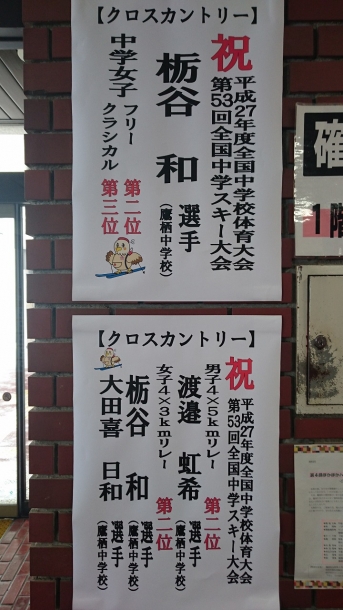 【クロスカントリー】
祝
平成27年度全国中学校体育大会
第53回全国中学スキー大会
栃谷 和 選手
(鷹栖中学校)
中学女子 フリー 第二位
クラシカル 第三位
【クロスカントリー】
祝
平成27年度全国中学校体育大会
第53回全国中学スキー大会
男子4×5kmリレー 第二位
渡邉 虹希 選手
(鷹栖中学校)
女子4×3kmリレー 第二位
栃谷 和 選手
(鷹栖中学校)
大田喜 日和 選手
(鷹栖中学校)
確
1階